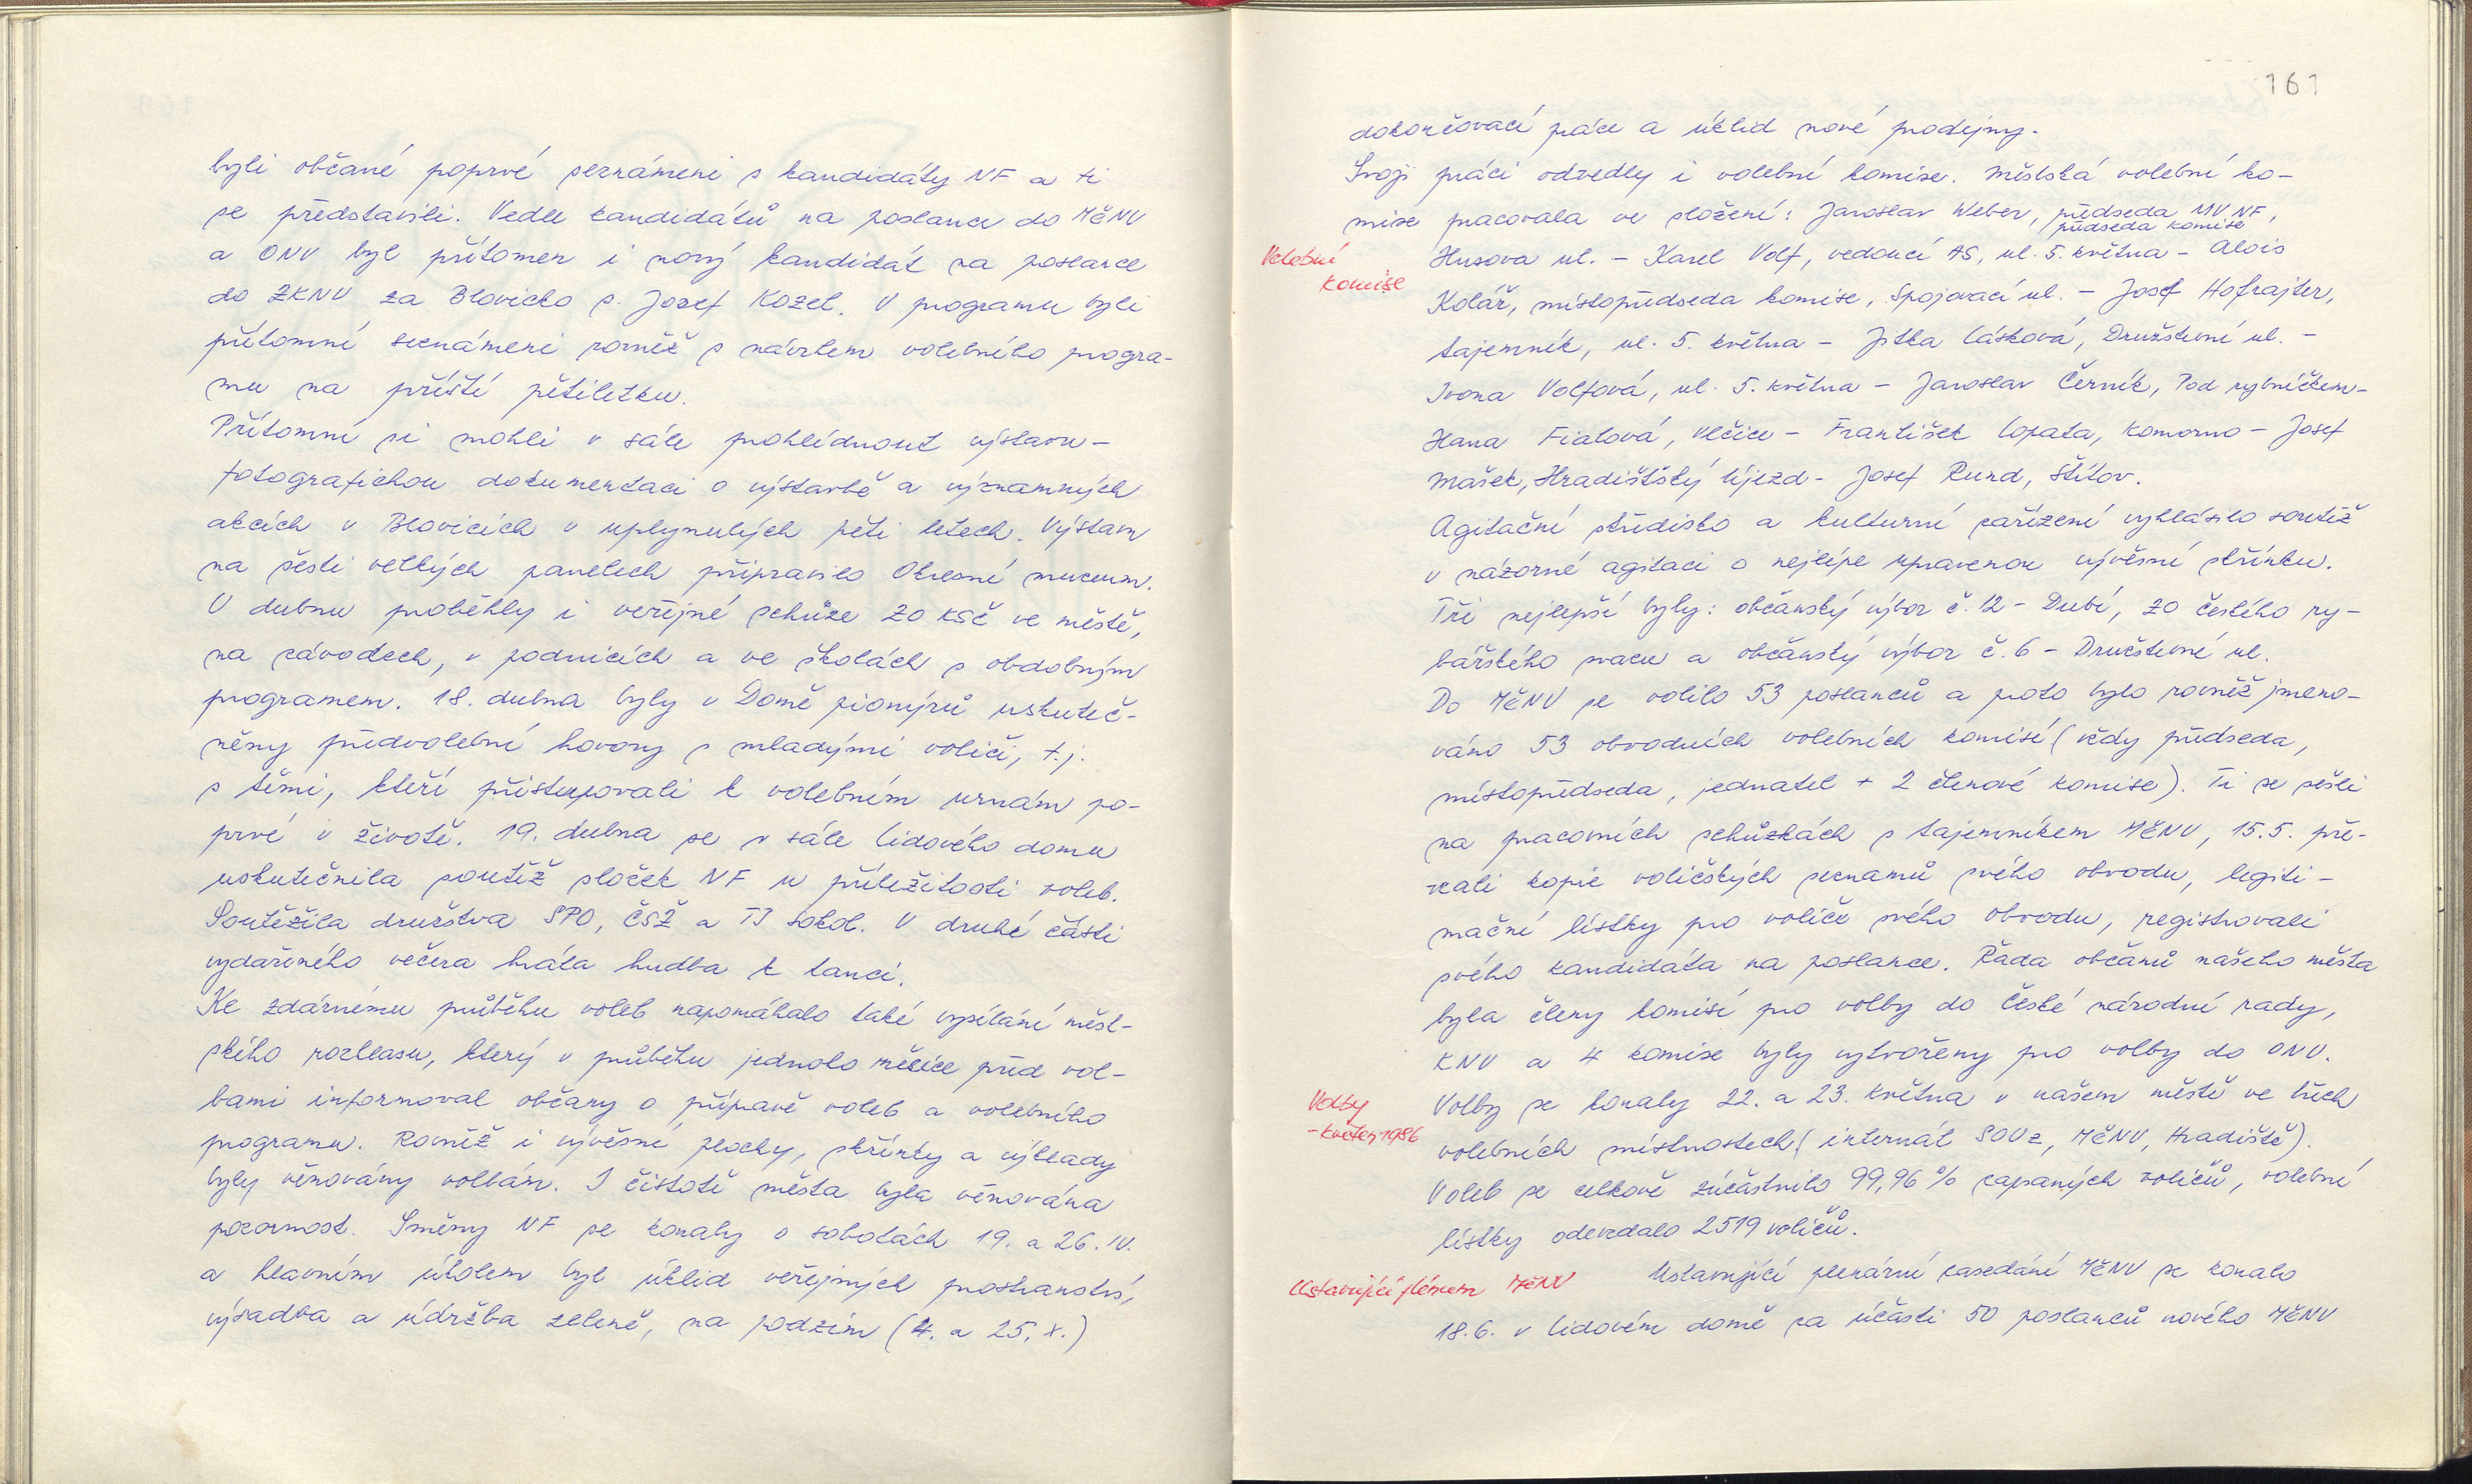 byli občané poprvé seznámeni s kandidáty NF a ti
se představili. Vedle kandidátů na poslance do MěNV
a ONV byl přítomen i nový kandidát na poslance
do ZKNV za Blovicko s. Josef Kozel. V programu byli
přítomní seznámeni rovněž s návrhem volebního progra-
mu na příští pětiletku.
Přítomní si mohli v sále prohlédnout výstavu -
fotografickou dokumentaci o výstavbě a významných
akcích v Blovicích v uplynulých pěti letech. Výstavu
na šesti velkých panelech připravilo Okresní muzeum.
V dubnu proběhly i veřejné schůze ZO KSČ ve městě,
na závodech, v podnicích a ve školách s obdobným
programem. 18. dubna byly v Domě pionýrů uskuteč-
něny předvolební hovory s mladými voliči, t.j.
s těmi, kteří přistupovali k volebním urnám po-
prvé v životě. 19. dubna se v sále Lidového domu
uskutečnila soutěž složek NF u příležitosti voleb.
Soutěžila družstva SPO, ČSŽ a TJ Sokol. V druhé části
vydařeného večera hrála hudba k tanci.
Ke zdárnému průběhu voleb napomáhalo také vysílání měst-
ského rozhlasu, který v průběhu jednoho měsíce před vol-
bami informoval občany o přípravě voleb a volebního
programu. Rovněž i vývěsné plochy, skřínky a výklady
byly věnovány volbám. I čistotě města byla věnována
pozornost. Směny NF se konaly o sobotách 19. a 26. IV.
a hlavním úkolem byl úklid veřejných prostranství,
výsadba a údržba zeleně, na podzim (4. a 25. X.)
161
dokončovací práce a úklid nové prodejny.
Svoji práci odvedly i volební komise. Městská volební ko-
mise pracovala ve složení: Jaroslav Weber, předseda MV NF,
předseda komise
Volební
komise
Husova ul. - Karel Volf, vedoucí AS, ul. 5. května - Alois
Kolář, místopředseda komise, Spojovací ul. - Josef Hofrajter,
tajemník, ul. 5. května - Jitka Lásková, Družstevní ul. -
Ivona Volfová, ul. 5. května - Jaroslav Černík, Pod rybníčkem -
Hana Fialová, Vlčice - František Lopata, Komorno - Josef
Mašek, Hradišťský Újezd - Josef Rund, Štítov.
Agitační středisko a kulturní zařízení vyhlásilo soutěž
v názorné agitaci o nejlépe upravenou vývěsní skřínku.
Tři nejlepší byly: občanský výbor č. 12 - Dubí, ZO českého ry-
bářského svazu a občanský výbor č. 6 - Družstevné ul.
Do MěNV se volilo 53 poslanců a proto bylo rovněž jmeno-
váno 53 obvodních volebních komisí (vždy předseda,
místopředseda, jednatel + 2 členové komise). Ti se sešli
na pracovních schůzkách s tajemníkem MěNV, 15.5. pře-
vzali kopie voličských seznamů svého obvodu, legiti-
mační lístky pro voliče svého obvodu, registrovali
svého kandidáta na poslance. Řada občanů našeho města
byla členy komisí pro volby do České národní rady,
KNV a 4 komise byly vytvořeny pro volby do ONV.
Volby
- květen 1986
Volby se konaly 22. a 23. května v našem městě ve třech
volebních místnostech (internát SOUz, MěNV, Hradiště).
Voleb se celkově zúčastnilo 99,96% zapsaných voličů, volební
lístky odevzdalo 2519 voličů.
Ustavující plénum MěNV
Ustavující plenární zasedání MěNV se konalo
18.6. v Lidovém domě za účasti 50 poslanců nového MěNV